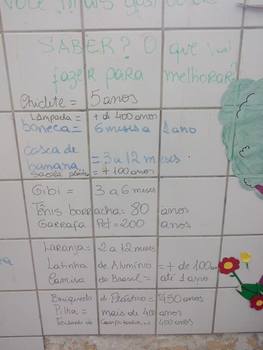 você mais gostou de
SABER? O que vai
fazer para melhorar?
Chiclete = 5 anos
Lâmpada = + di 400 anos
boneca = 6 meses a 1 ano
casca de
banana = 3 a 12 meses
= + 100 anos
Gibi = 3 a 6 meses
Tênis borracha = 80 anos
Garrafa Pet = 200 anos
Laranja = 2 a 12 meses
Latinha de Alumínio = + de 100
Camisa do Brasil = até 1 ano
Brinquedo d Plástico = 450 anos
Pilha = mais de 400 anos
400 anos